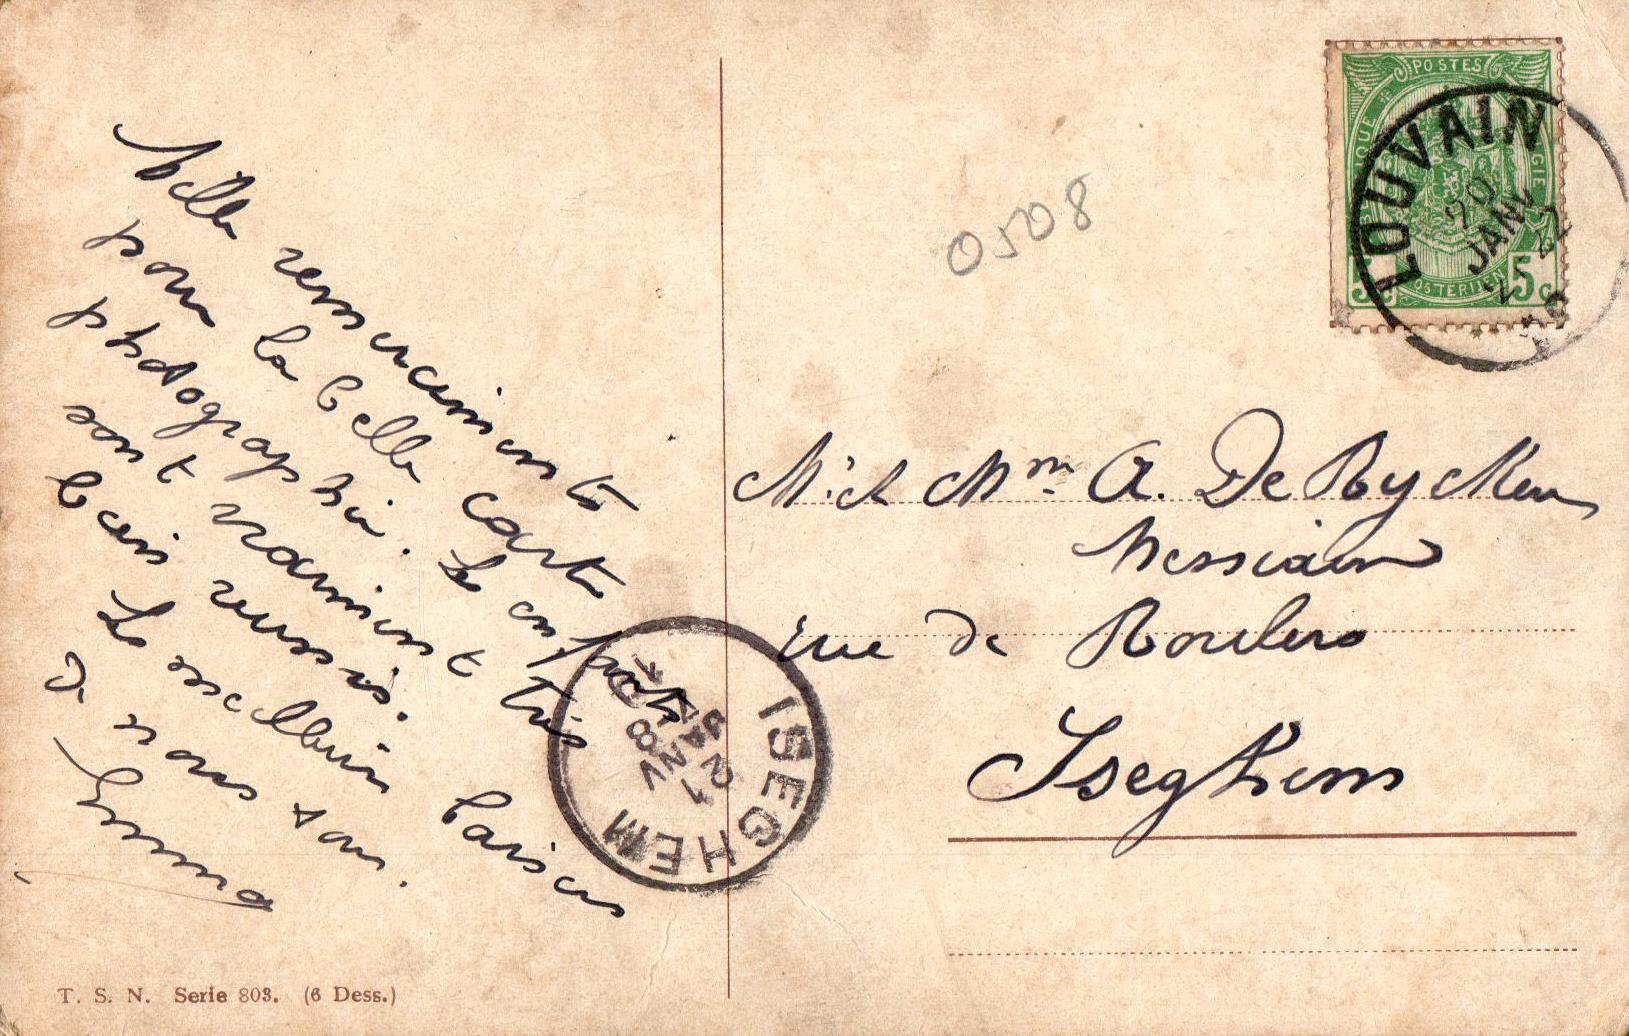 Mille remerciements
pour la belle carte
photographie. Les enfants
sont vraiment très
bien reussis.
Les meilleurs baisers
de nous tous.
Emma
T. S. N. Serie 803. (6 Dess.)
0508
POSTES
5 5c
LOUVAIN
20
JANV
ISEGHEM
21
JANV
8
Mr et Mme A. De Ryckere
Messiaen
rue de Roulers
Iseghem